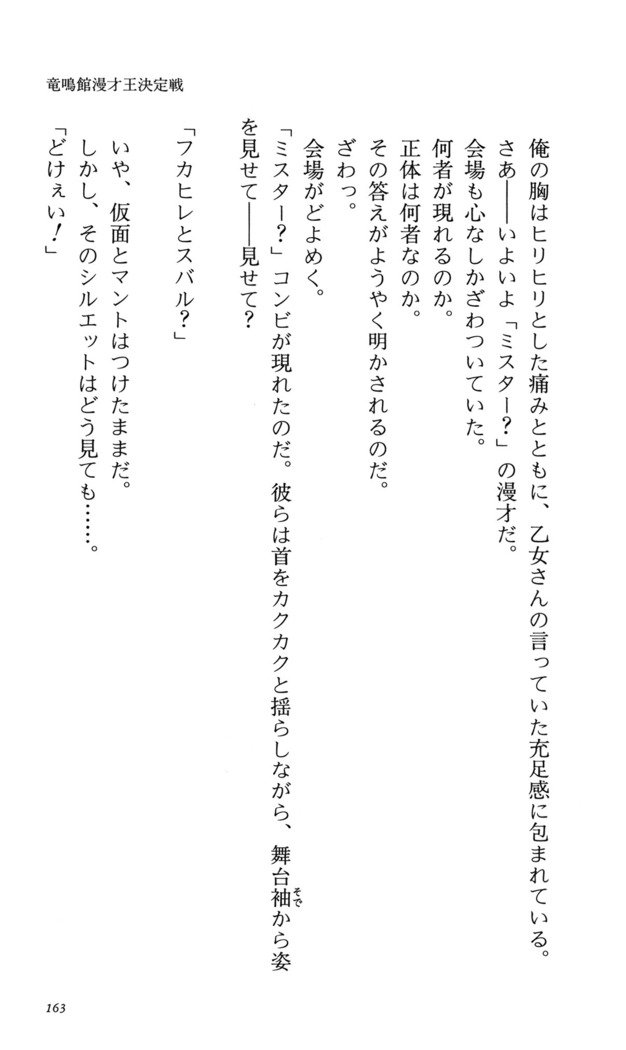 竜鳴館漫才王決定戦
俺の胸はヒリヒリとした痛みとともに、乙女さんの言っていた充足感に包まれている。
さあ――いよいよ「ミスター？」の漫才だ。
会場も心なしかざわついていた。
何者が現れるのか。
正体は何者なのか。
その答えがようやく明かされるのだ。
ざわっ。
会場がどよめく。
「ミスター？」コンビが現れたのだ。彼らは首をカクカクと揺らしながら、舞台袖から姿
そで
を見せて――見せて？
「フカヒレとスバル？」
いや、仮面とマントはつけたままだ。
しかし、そのシルエットはどう見ても……。
「どけぇい！」
163